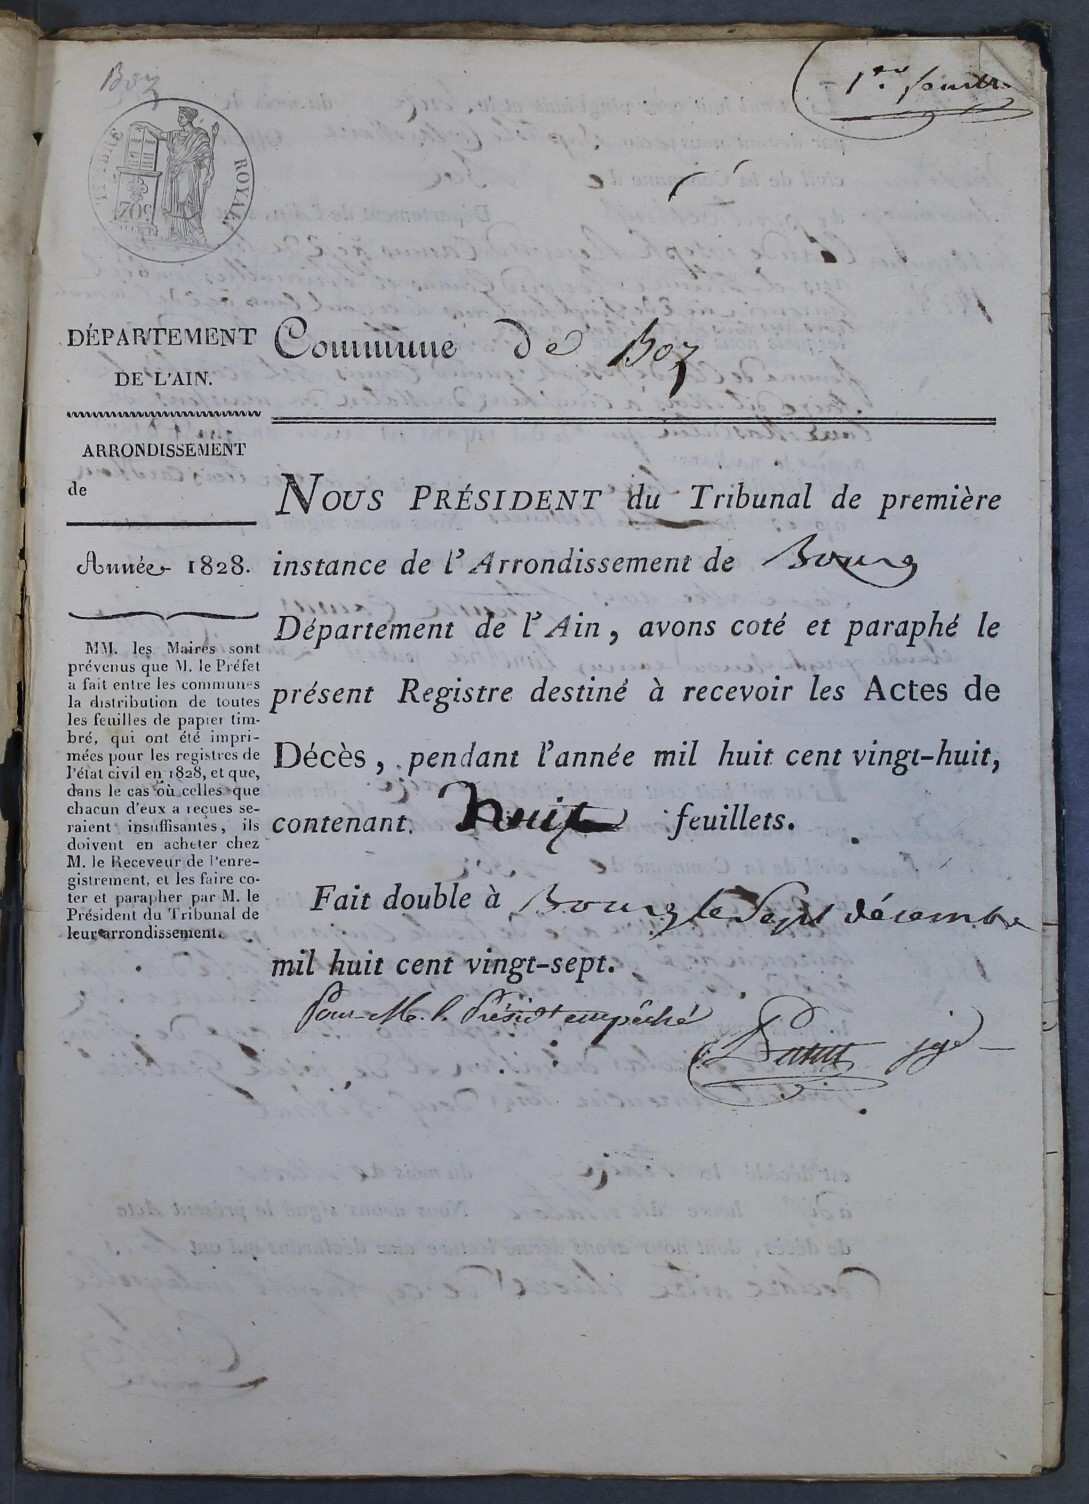 Boz
1er. feuillet
TIMBRE ROYAL
DÉPARTEMENT
DE L'AIN.
ARRONDISSEMENT
de
Année 1828.
MM. les Maires sont
prévenus que M. le Préfet
a fait entre les communes
la distribution de toutes
les feuilles de papier tim-
bré, qui ont été impri-
mées pour les registres de
l'état civil en 1828, et que,
dans le cas où celles que
chacun d'eux a reçues se-
raient insuffisantes, ils
doivent en acheter chez
M. le Receveur de l'enre-
gistrement, et les faire co-
ter et parapher par M. le
Président du Tribunal de
leur arrondissement.
Commune de Boz
NOUS PRÉSIDENT du Tribunal de première
instance de l'Arrondissement de Bourg
Département de l'Ain, avons coté et paraphé le
présent Registre destiné à recevoir les Actes de
Décès, pendant l'année mil huit cent vingt-huit,
contenant huit feuillets.
Fait double à Bourg le sept décembre
mil huit cent vingt-sept.
Pour M. le Présidt empêché
juge